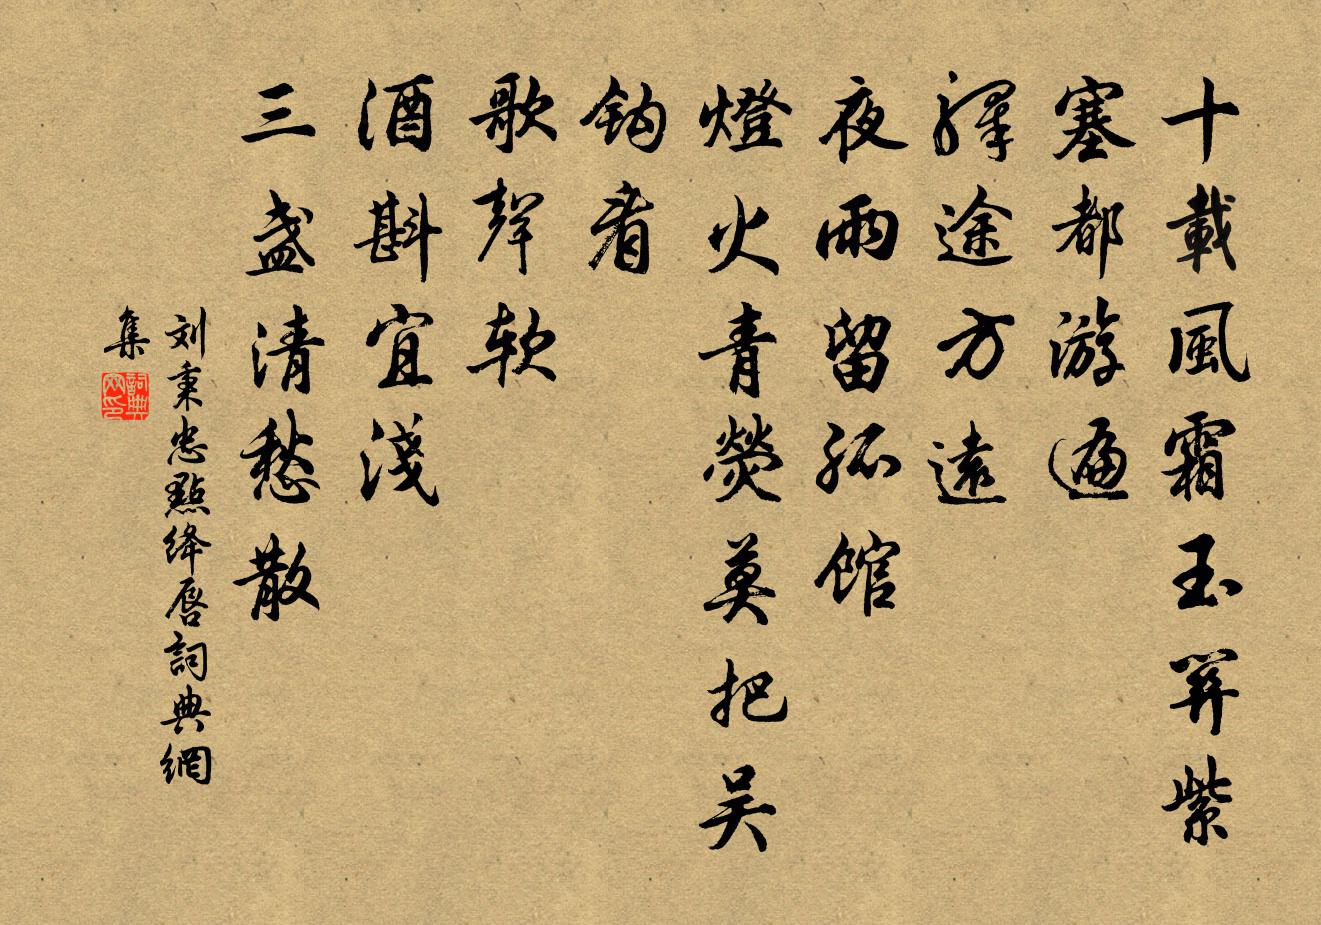 十載風霜玉關紫
塞都游遍
驛途方遠
夜雨留孤館
燈火青熒莫把吴
鈎看
歌聲软
酒斟宜淺
三盏清愁散
刘秉忠點绛唇詞典網
集
詞典網印